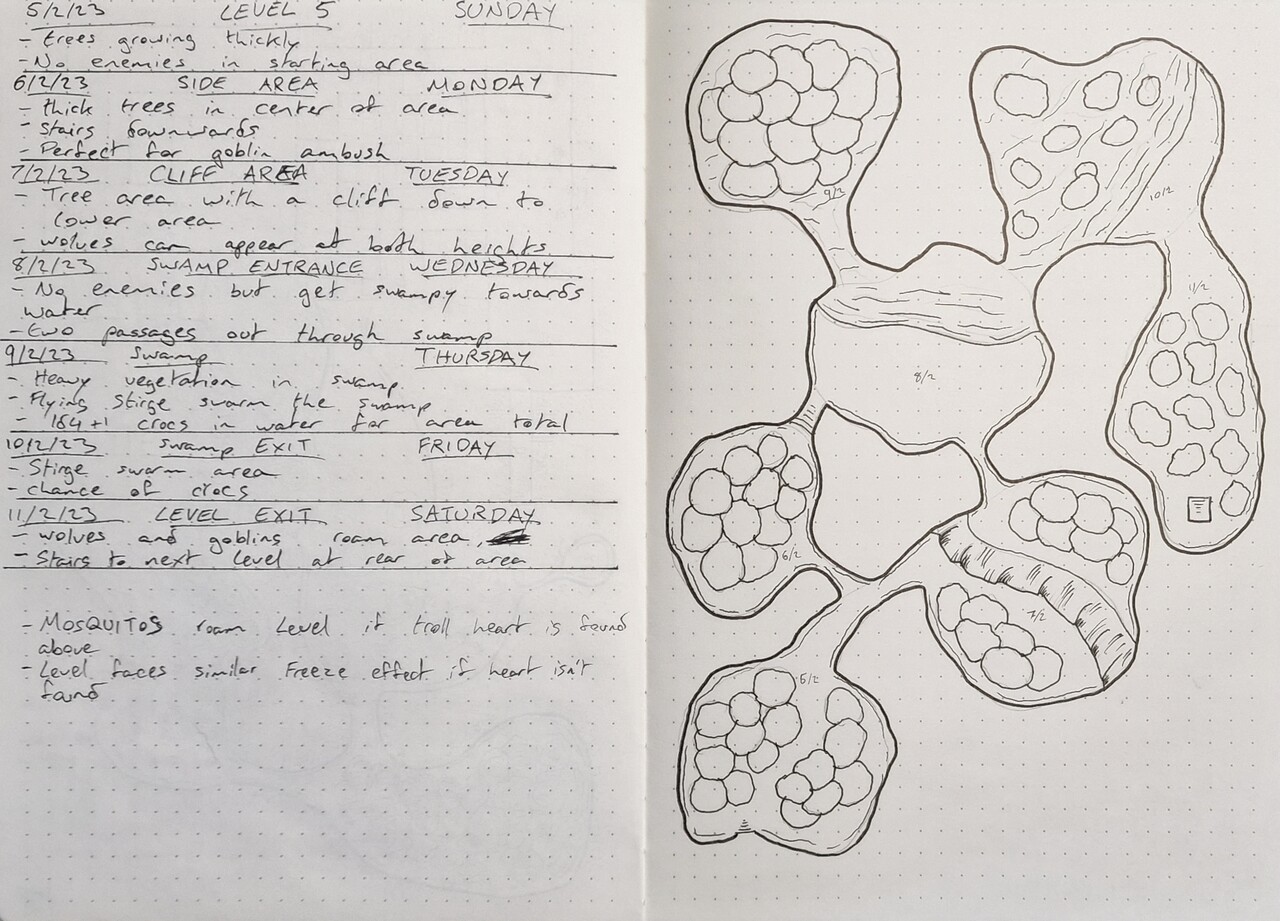 5/2/23 LEVEL 5 SUNDAY
- trees growing thickly
- No enemies in starting area
6/2/23 SIDE AREA MONDAY
- thick trees in center of area
- Stairs downwards
- Perfect for goblin ambush
7/2/23 CLIFF AREA TUESDAY
- Tree area with a cliff down to
lower area
- wolves can appear at both heights
8/2/23 SWAMP ENTRANCE WEDNESDAY
- No enemies but get swampy towards
water
- two passages out through swamp
9/2/23 Swamp THURSDAY
- Heavy vegetation in swamp
- Flying Stirge swarm the swamp
- 1d4+1 crocs in water for area total
10/2/23 Swamp EXIT FRIDAY
- Stirge swarm area
- chance of crocs
11/2/23 LEVEL EXIT SATURDAY
- wolves and goblins roam area,
- Stairs to next level at rear of area
- MOSQUITOS roam Level if troll heart is found
above
- Level faces similar Freeze effect if heart isn't
found
9/2
10/2
11/2
8/2
6/2
7/2
5/2